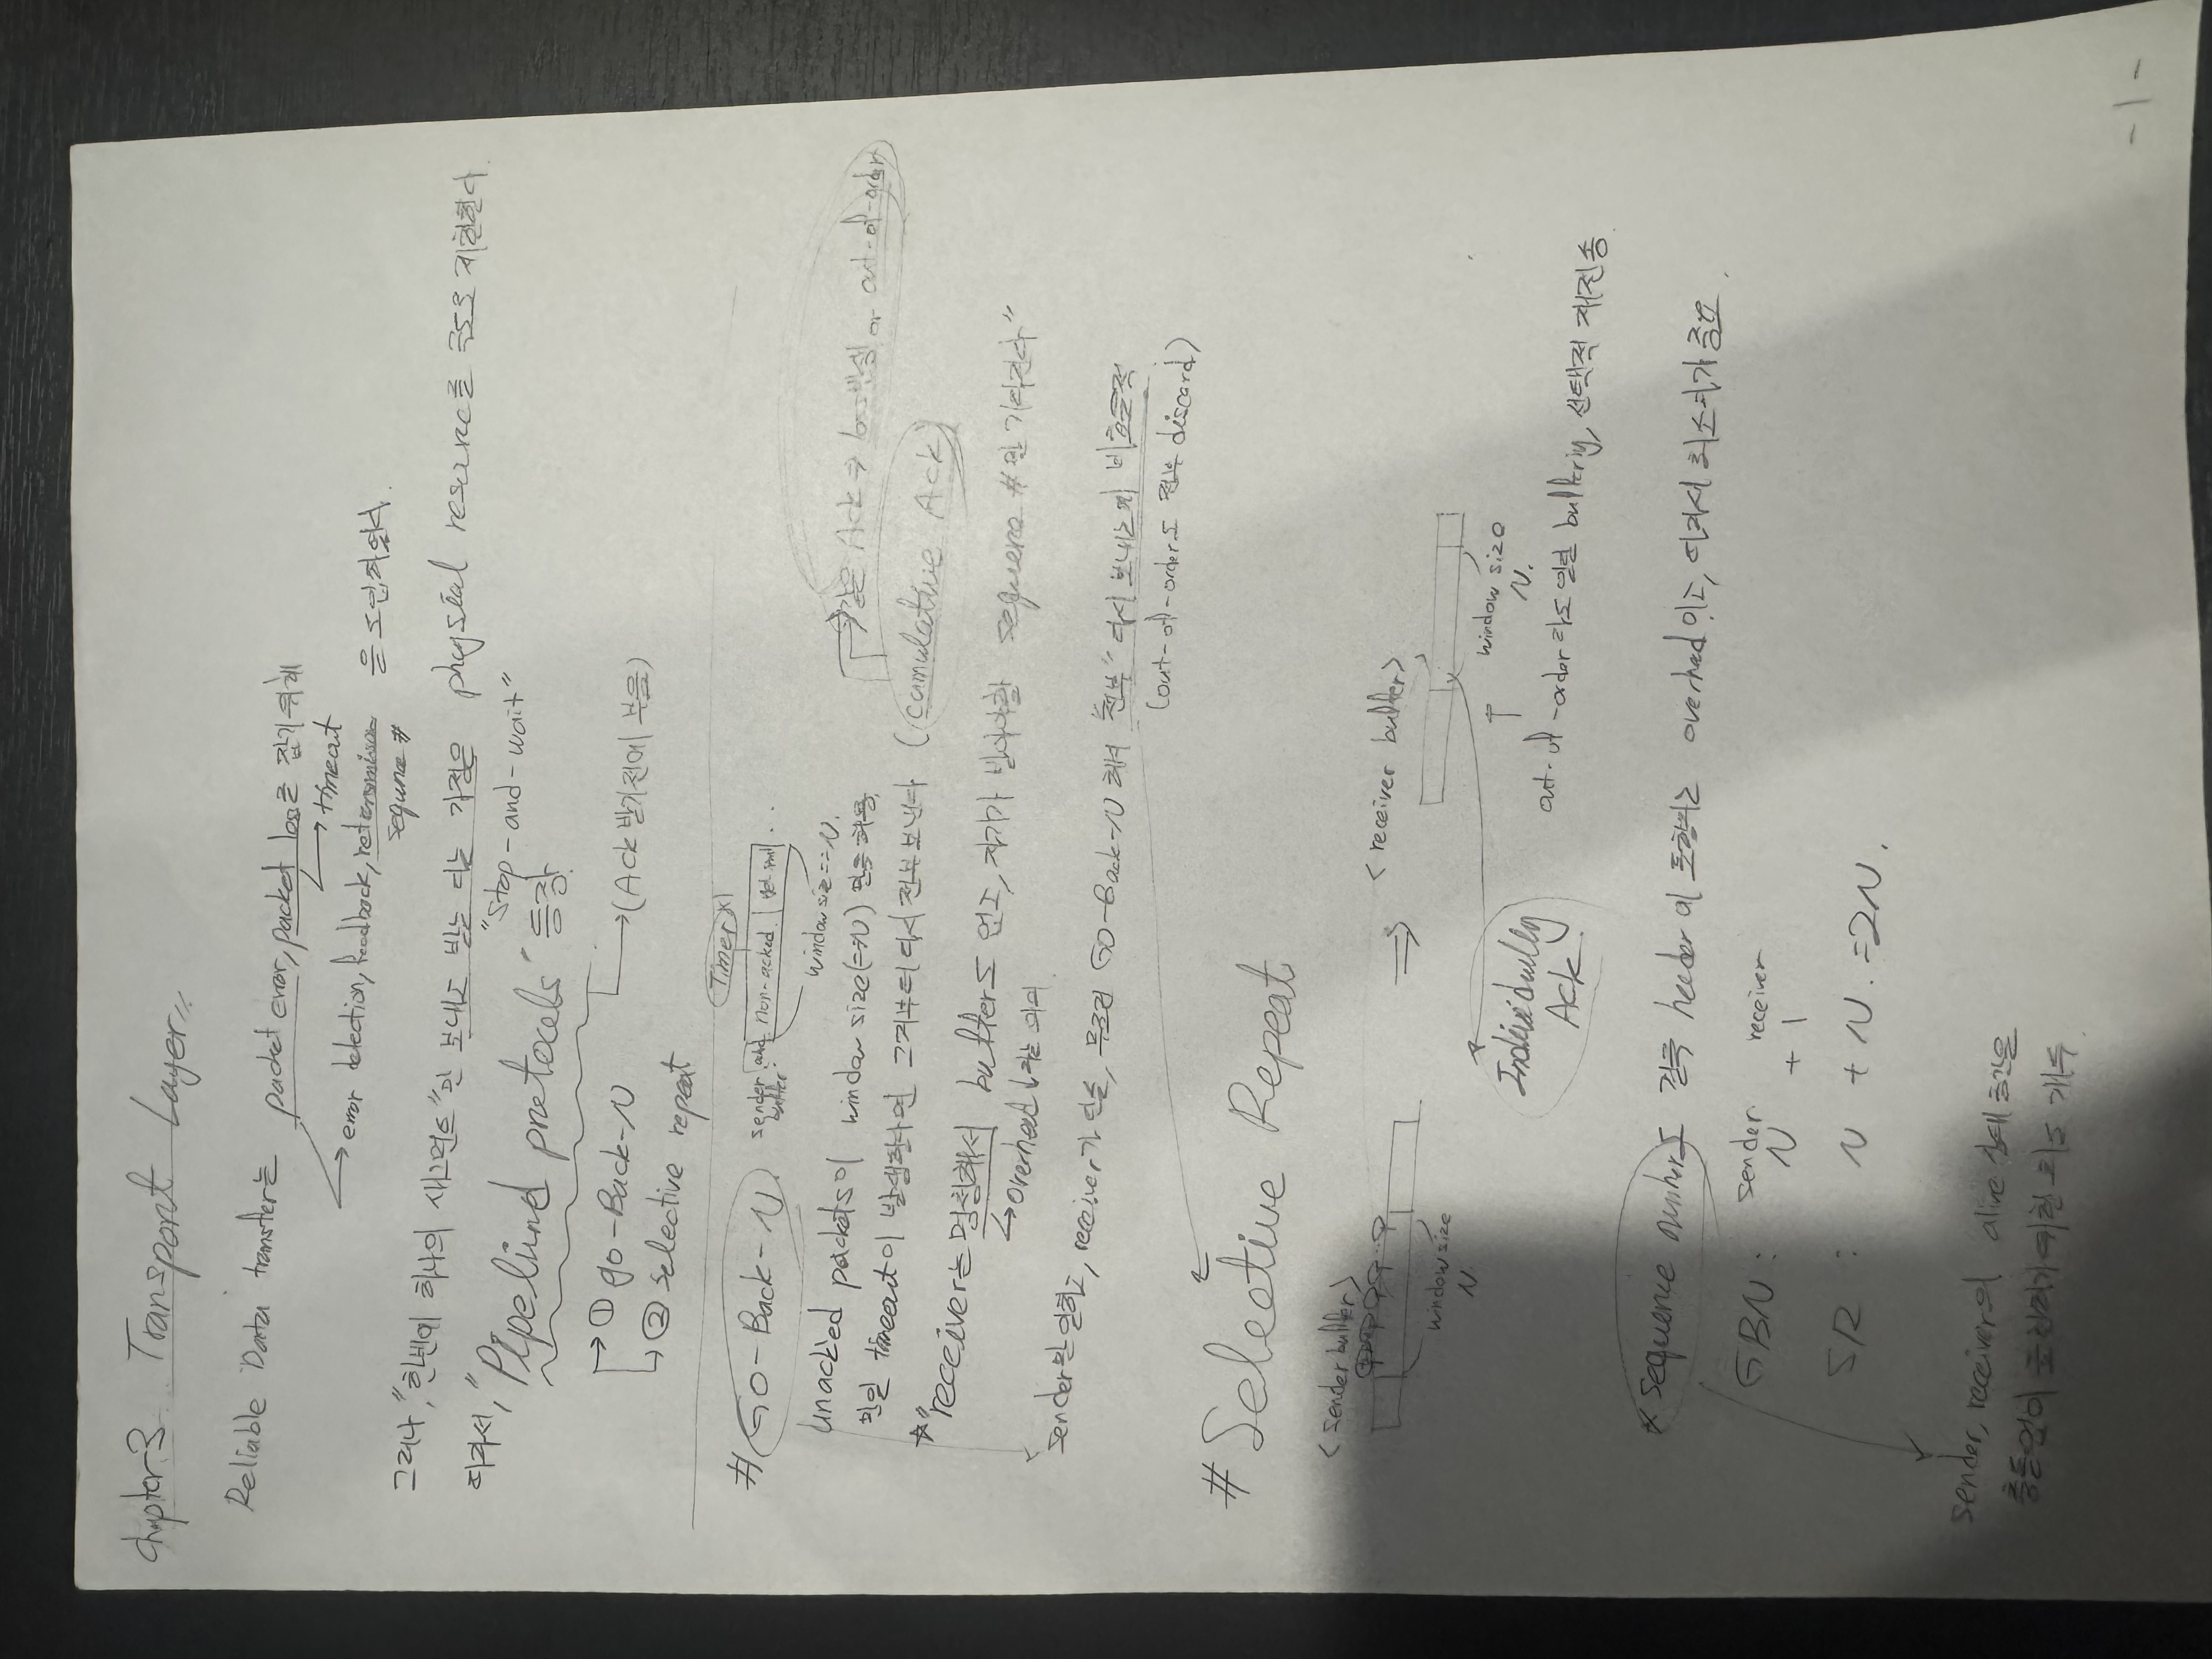 chapter3 Transport Layer
Reliable Data transfer는 packet error, packet loss를 잡기 위해
timeout
error detection, feedback, retransmission 을 도입하였다.
sequnce #
그러나, "한번에 하나의 세그먼트"만 보내고 받는 다는 가정은 physial resource를 극도로 제한한다.
"stop-and-wait"
따라서, "Pipelined protocols" 등장.
① go-Back-N
(Ack 받기전에 부음)
② selective repeat
Timer x1
# Go-Back-N. sender buffer: acked non-acked not-sent ..
window size==N.
unacked packets이 window size(==N) 만큼 허용.
같은 Ack ⇒ loss발생 or out-of-order
만일 timeout이 발생한다면 그거부터 다시 전부 보낸다 (cumulative Ack)
☆ "receiver는 멍청해서 buffer도 없고, 자기가 받아야할 sequence #만 기다린다"
overhead ↓라는 의미
sender만 일하고, receiver가 단순, 무조건 GO-Back-N 해서 "전부" 다시 보내는게 비효율적
(out-of-order도 전부 discard)
# Selective Repeat
<sender buffer>
<receiver buffer>
window size
N.
window size
N.
Individually
Ack.
out-of-order라도 일단 buffering, 선택적 재전송
* sequence number도 결국 header에 포함되는 overhead이고, 따라서 최소화가 중요.
sender receiver
GBN : N + 1
SR : N + N. =2N.
sender, receiver의 alive 상태 공간을
충돌없이 표현하기 위한 최소 개수.
-1-